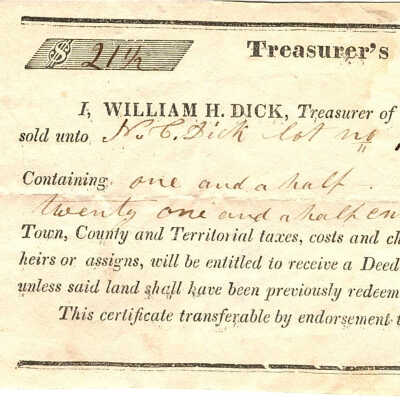 $ 21 1/2
Treasurer's
I, WILLIAM H. DICK, Treasurer of
sold unto N. C. Dick lot no
Containing one and a half
twenty one and a half cen
Town, County and Territorial taxes, costs and ch
heirs or assigns, will be entitled to receive a Deed
unless said land shall have been previously redeem
This certificate transferable by endorsement t